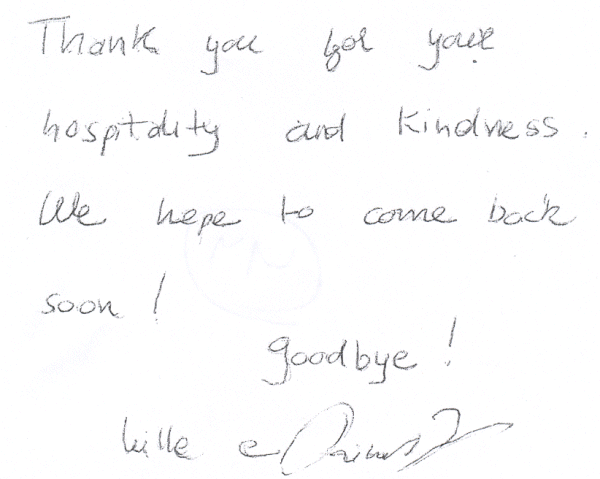 Thank you for your
hospitality and kindness.
We hope to come back
soon!
goodbye!
e